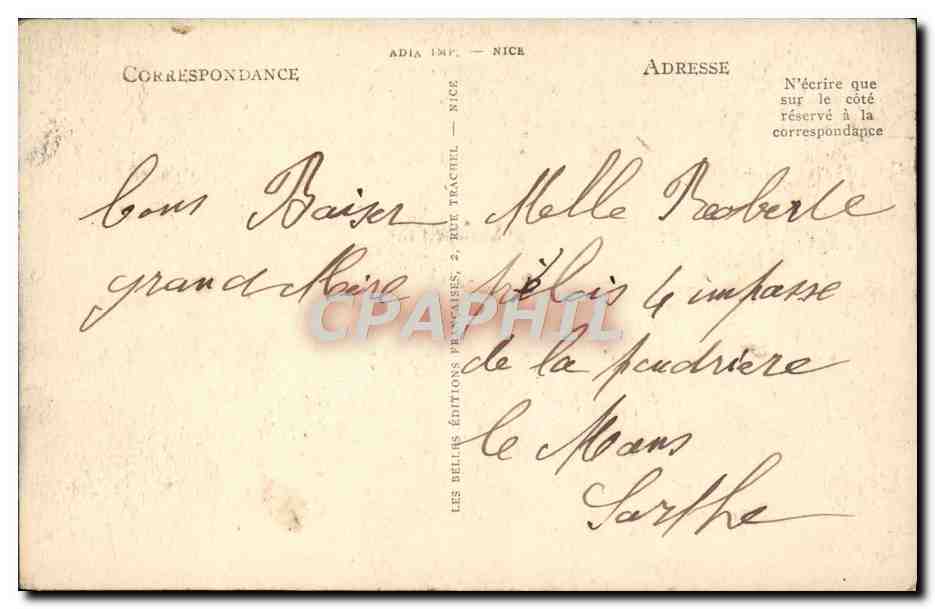 ADIA IMP. — NICE
CORRESPONDANCE
ADRESSE
N'écrire que
sur le côté
réservé à la
correspondance
LES BELLES ÉDITIONS FRANÇAISES, 2, RUE TRACHEL — NICE
bons Baiser
grand Mère
Melle Roberte
4 impasse
de la poudriere
le Mans
Sarthe
CPAPHIL